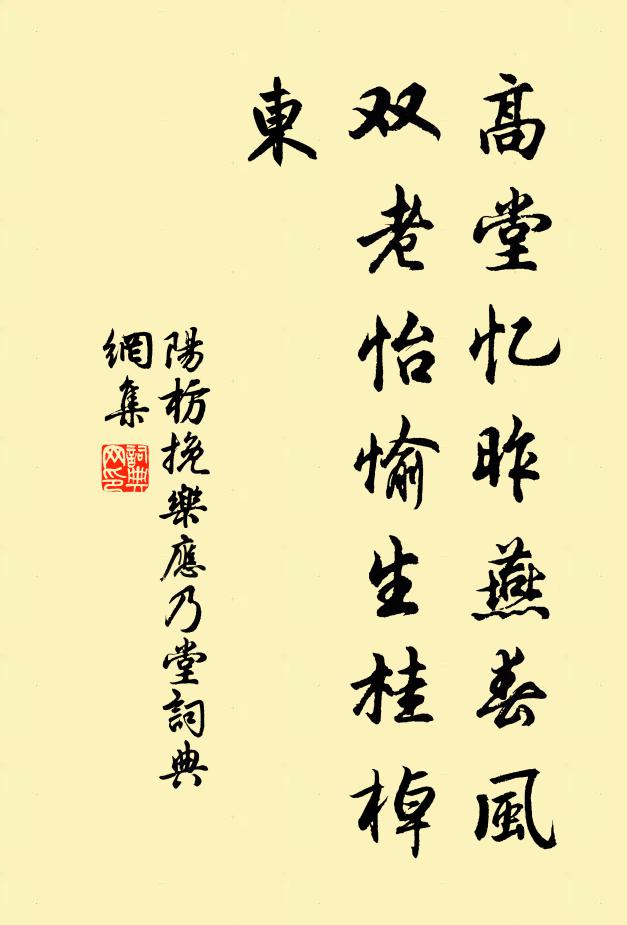 高堂忆昨燕春風
双老怡愉生桂棹
東
陽枋挽樂應乃堂詞典
網集
詞典网印